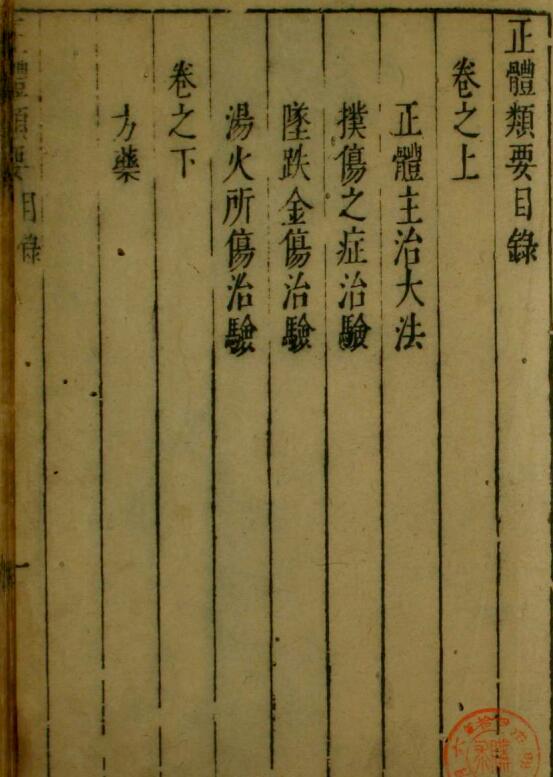 正體類要目錄
卷之上
正體主治大法
撲傷之症治驗
墜跌金傷治驗
湯火所傷治驗
卷之下
方藥
正體類要 目錄
一